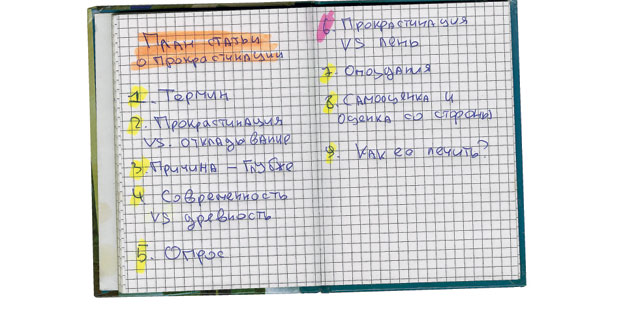 План статьи
о прокрастинации
1. Термин
2. Прокрастинация
vs. откладывание
3. Причина – глубже
4 Современность
vs древность
5. Опрос
6. Прокрастинация
vs лень
7. Опоздания
8. Самооценка и
оценка со стороны
9. Как её лечить?